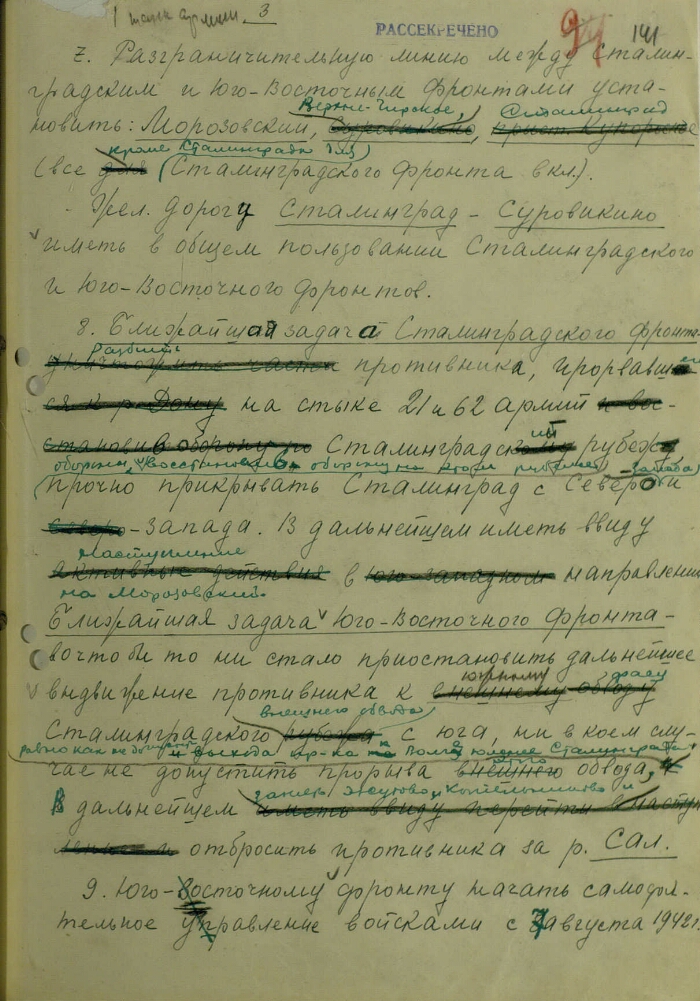 1 танк армии 3
РАССЕКРЕЧЕНО
141
7. Разграничительную линию между Сталин-
градским и Юго-Восточным фронтами уста-
Верхне-Чирское, Сталинград
новить: Морозовский, Суровикино,
кроме Сталинграда
(все для Сталинградского фронта вкл.).
Жел. дорогу Сталинград – Суровикино
иметь в общем пользовании Сталинградского
и Юго-Восточного фронтов.
8. Ближайшая задача Сталинградского фронта
разбить
уничтожить части противника, прорвавше
ся к р. Дону на стыке 21 и 62 армий и вос-
становив оборону по Сталинградский рубеж
обороны, восстановить оборону на этом рубеже
прочно прикрывать Сталинград с Севера и
северо-запада. В дальнейшем иметь ввиду
наступление
активные действия в юго-западном направлении
на Морозовский.
Ближайшая задача Юго-Восточного фронта –
вочто бы то ни стало приостановить дальнейшее
южному фасу
выдвижение противника к внешнему обводу
внешнего обвода
Сталинградского рубежа с юга, ни в коем слу-
равно как не выхода пр-ка к Волге южнее Сталинграда
этого
чае не допустить прорыва внешнего обвода,
занять Жутово, Котельниково и
В дальнейшем иметь ввиду перейти в насту
пление и отбросить противника за р. Сал.
9. Юго-Восточному фронту начать самостоя-
тельное управление войсками с 7 августа 1942 г.